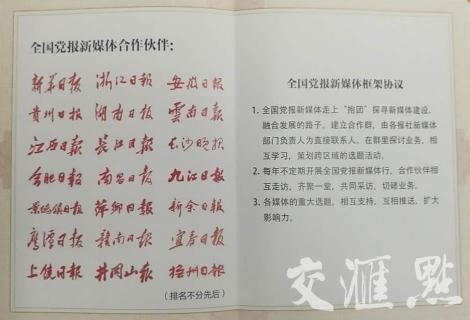 全国党报新媒体合作伙伴：
新华日报 浙江日报 安徽日报
贵州日报 湖南日报 云南日报
江西日报 长江日报 长沙晚报
合肥日报 南昌日报 九江日报
景德镇日报 萍乡日报 新余日报
鹰潭日报 赣南日报 宜春日报
上饶日报 井冈山报 抚州日报
（排名不分先后）
全国党报新媒体框架协议
1. 全国党报新媒体走上“抱团”探寻新媒体建设、
融合发展的路子。建立合作群，由各报社新媒体
部门负责人为直接联系人，在群里探讨业务，相
互学习，策划跨区域的选题活动。
2. 每年不定期开展全国党报新媒体行，合作伙伴相
互走访，齐聚一堂，共同采访，切磋业务。
3. 各媒体的重大选题，相互支持，互相推送，扩大
影响力。
交汇点